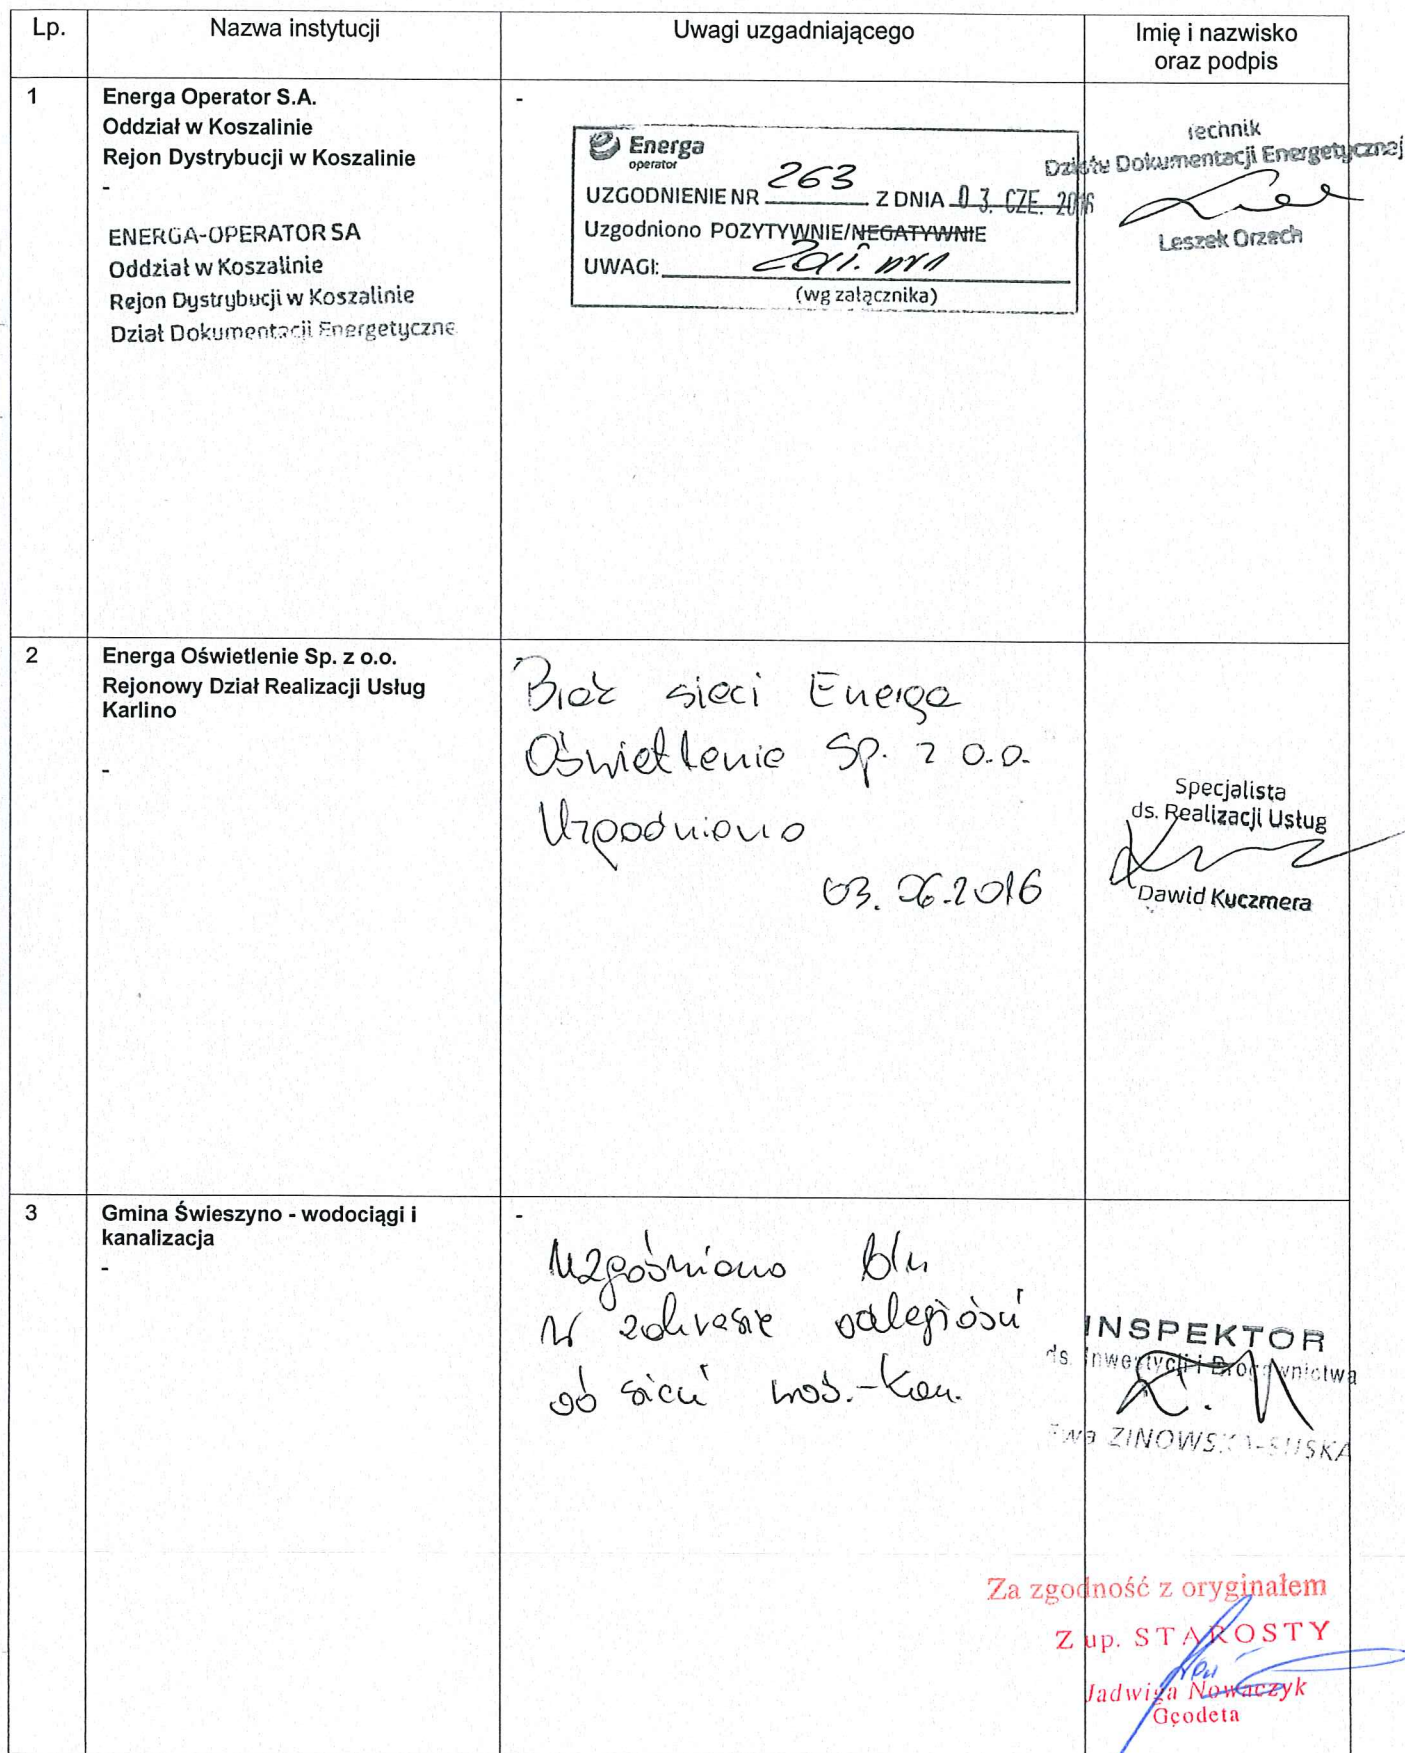 Lp. Nazwa instytucji Uwagi uzgadniającego Imię i nazwisko
oraz podpis
1 Energa Operator S.A.
Oddział w Koszalinie
Rejon Dystrybucji w Koszalinie
-
ENERGA-OPERATOR SA
Oddział w Koszalinie
Rejon Dystrybucji w Koszalinie
Dział Dokumentacji Energetyczne
-
Energa
operator
UZGODNIENIE NR 263 Z DNIA 03. CZE. 2016
Uzgodniono POZYTYWNIE/NEGATYWNIE
UWAGI: Zał. nr 1
(wg załącznika)
Technik
Działu Dokumentacji Energetycznej
Leszek Orzech
2 Energa Oświetlenie Sp. z o.o.
Rejonowy Dział Realizacji Usług
Karlino
-
-
Brak sieci Energa
Oświetlenie Sp. z o.o.
Uzgodniono
03.06.2016
Specjalista
ds. Realizacji Usług
Dawid Kuczmera
3 Gmina Świeszyno - wodociągi i
kanalizacja
-
-
Uzgodniono b/u
w zakresie odległości
od sieci wod.-kan.
INSPEKTOR
ds. Inwestycji i Drogownictwa
Ewa ZINOWSKA-SUSKA
Za zgodność z oryginałem
Z up. STAROSTY
Jadwiga Nowaczyk
Geodeta